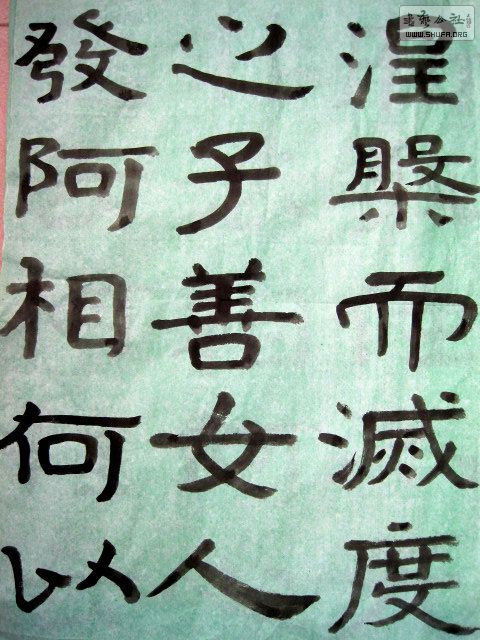 涅槃而滅度
之子善女人
發阿相何以
書藝公社
WWW.SHUFA.ORG